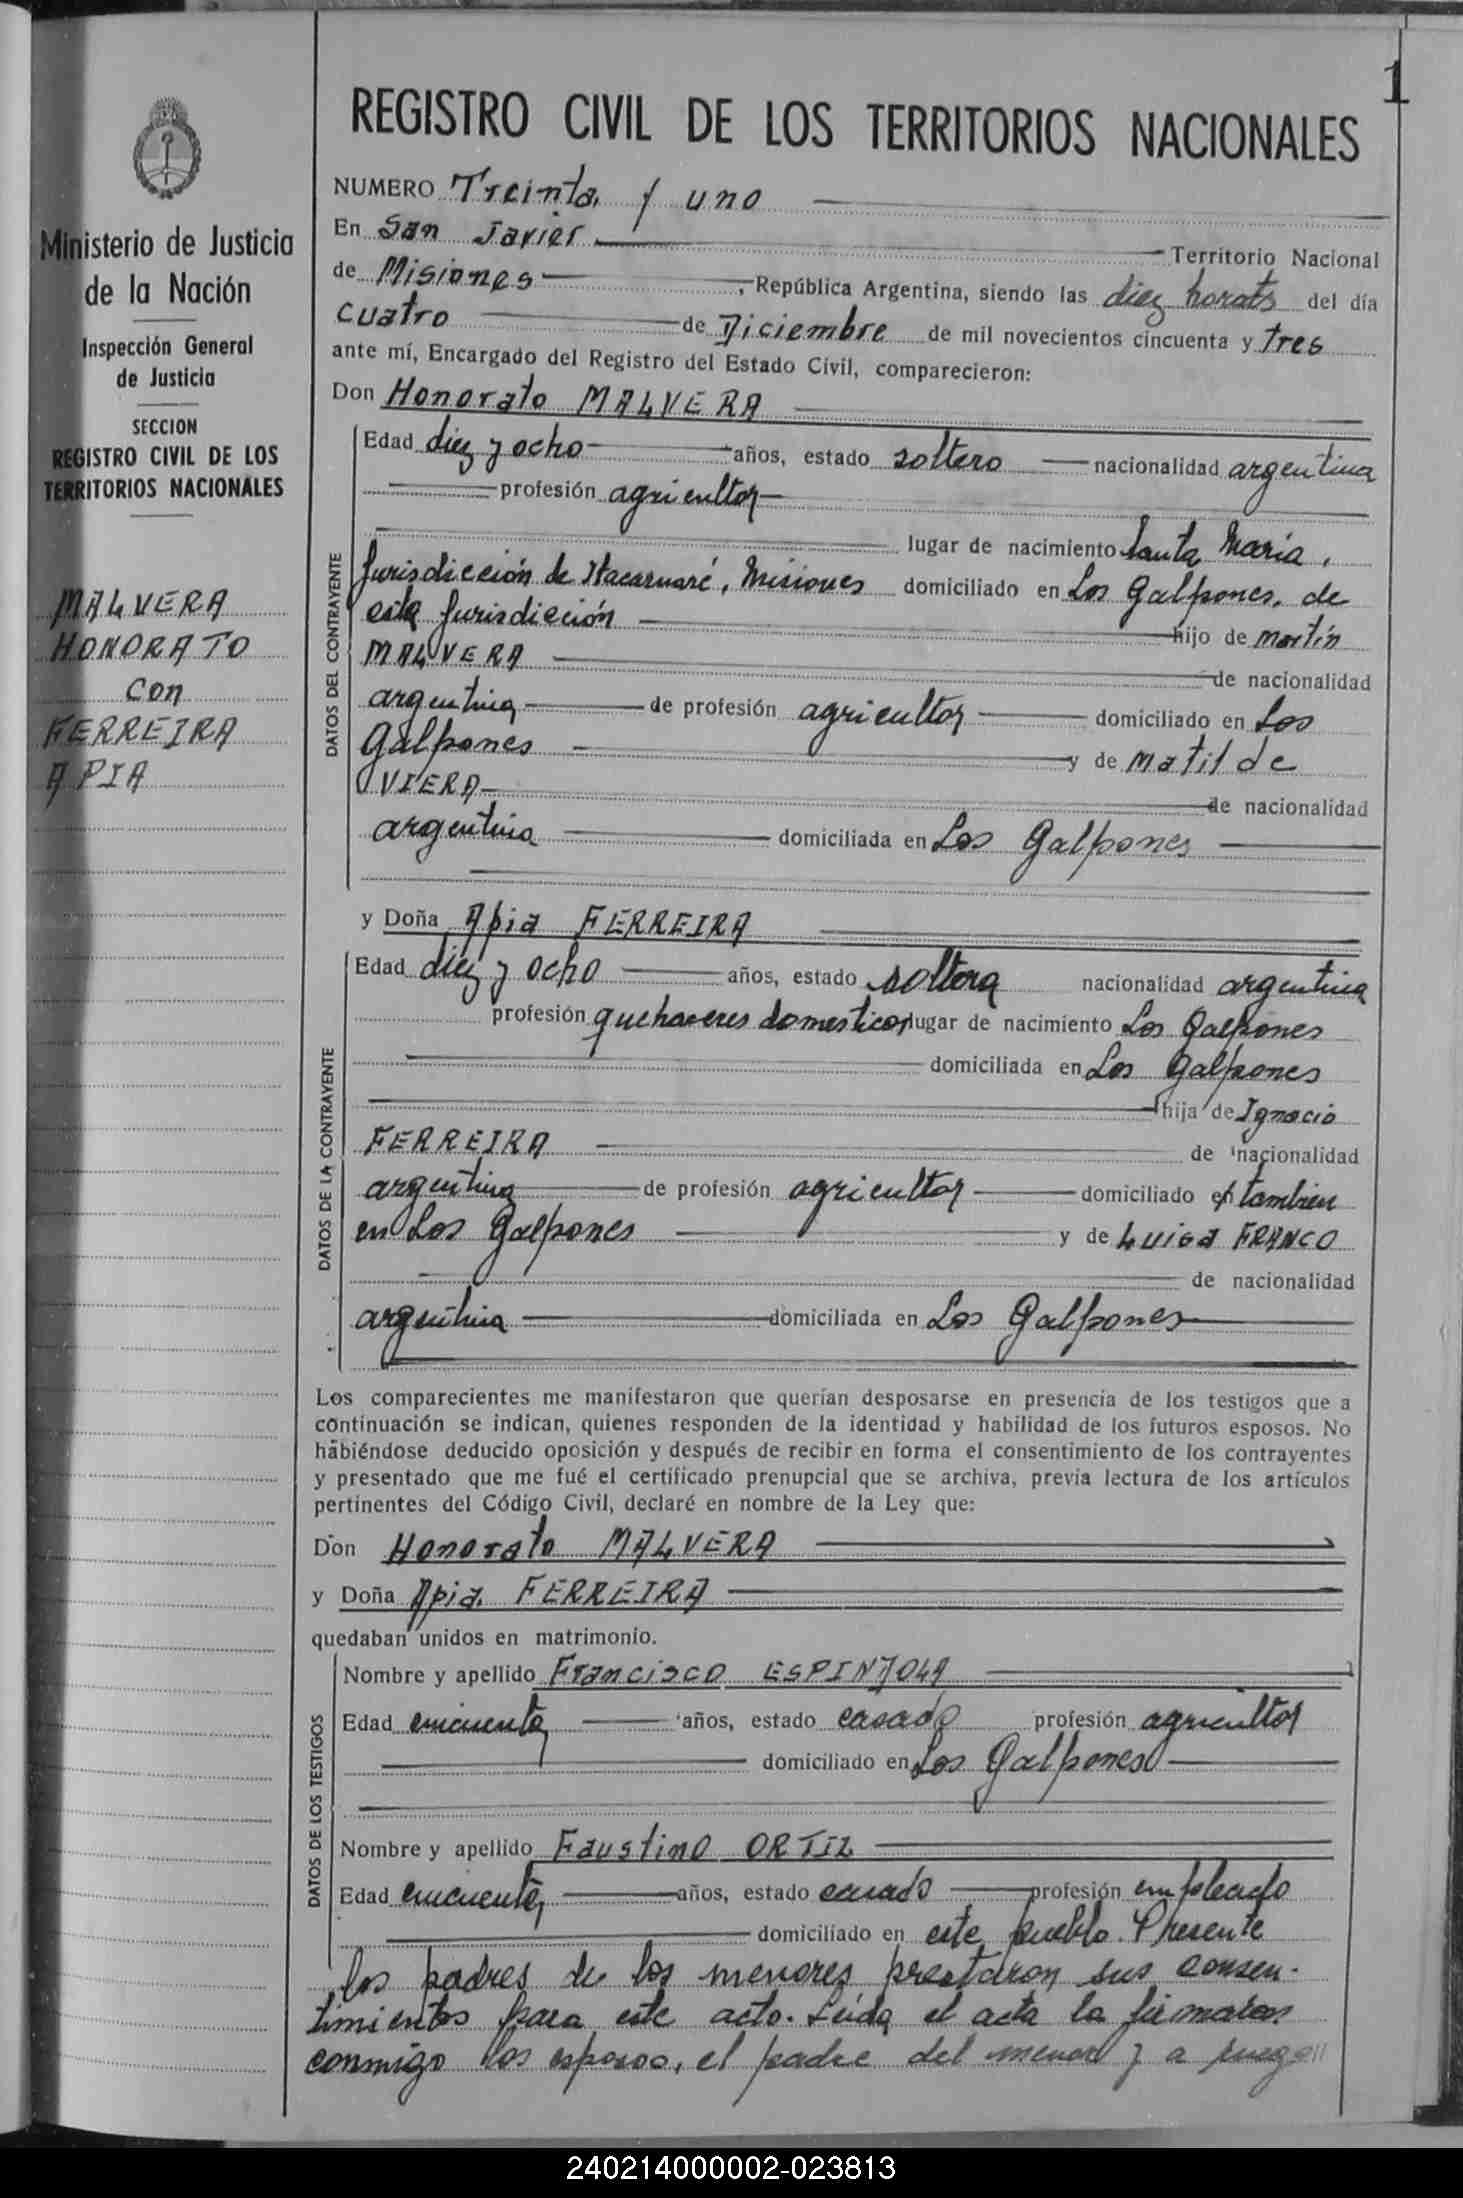 1
REGISTRO CIVIL DE LOS TERRITORIOS NACIONALES
Ministerio de Justicia
de la Nación
Inspección General
de Justicia
SECCION
REGISTRO CIVIL DE LOS
TERRITORIOS NACIONALES
MALVERA
HONORATO
con
FERREIRA
APIA
NUMERO Treinta y uno
En San Javier Territorio Nacional
de Misiones, República Argentina, siendo las diez horas del día
cuatro de Diciembre de mil novecientos cincuenta y tres
ante mí, Encargado del Registro del Estado Civil, comparecieron:
Don Honorato MALVERA
DATOS DEL CONTRAYENTE
Edad diez y ocho años, estado soltero nacionalidad argentina
profesión agricultor
lugar de nacimiento Santa María,
Jurisdicción de Itacaruaré, Misiones domiciliado en Los Galpones, de
esta Jurisdicción hijo de Martín
MALVERA de nacionalidad
argentina de profesión agricultor domiciliado en Los
Galpones y de Matilde
VIERA de nacionalidad
argentina domiciliada en Los Galpones
y Doña Apia FERREIRA
DATOS DE LA CONTRAYENTE
Edad diez y ocho años, estado soltera nacionalidad argentina
profesión quehaceres domesticos lugar de nacimiento Los Galpones
domiciliada en Los Galpones
hija de Ignacio
FERREIRA de nacionalidad
argentina de profesión agricultor domiciliado en tambien
en Los Galpones y de Luisa FRANCO
de nacionalidad
argentina domiciliada en Los Galpones
Los comparecientes me manifestaron que querían desposarse en presencia de los testigos que a
continuación se indican, quienes responden de la identidad y habilidad de los futuros esposos. No
habiéndose deducido oposición y después de recibir en forma el consentimiento de los contrayentes
y presentado que me fué el certificado prenupcial que se archiva, previa lectura de los artículos
pertinentes del Código Civil, declaré en nombre de la Ley que:
Don Honorato MALVERA
y Doña Apia FERREIRA
quedaban unidos en matrimonio.
DATOS DE LOS TESTIGOS
Nombre y apellido Francisco ESPINDOLA
Edad cincuenta años, estado casado profesión agricultor
domiciliado en Los Galpones
Nombre y apellido Faustino ORTIZ
Edad cincuenta años, estado casado profesión empleado
domiciliado en este pueblo. Presente
los padres de los menores prestaron sus consen-
timientos para este acto. Leida el acta la firmaron
conmigo los esposos, el padre del menor y a ruego//
240214000002-023813